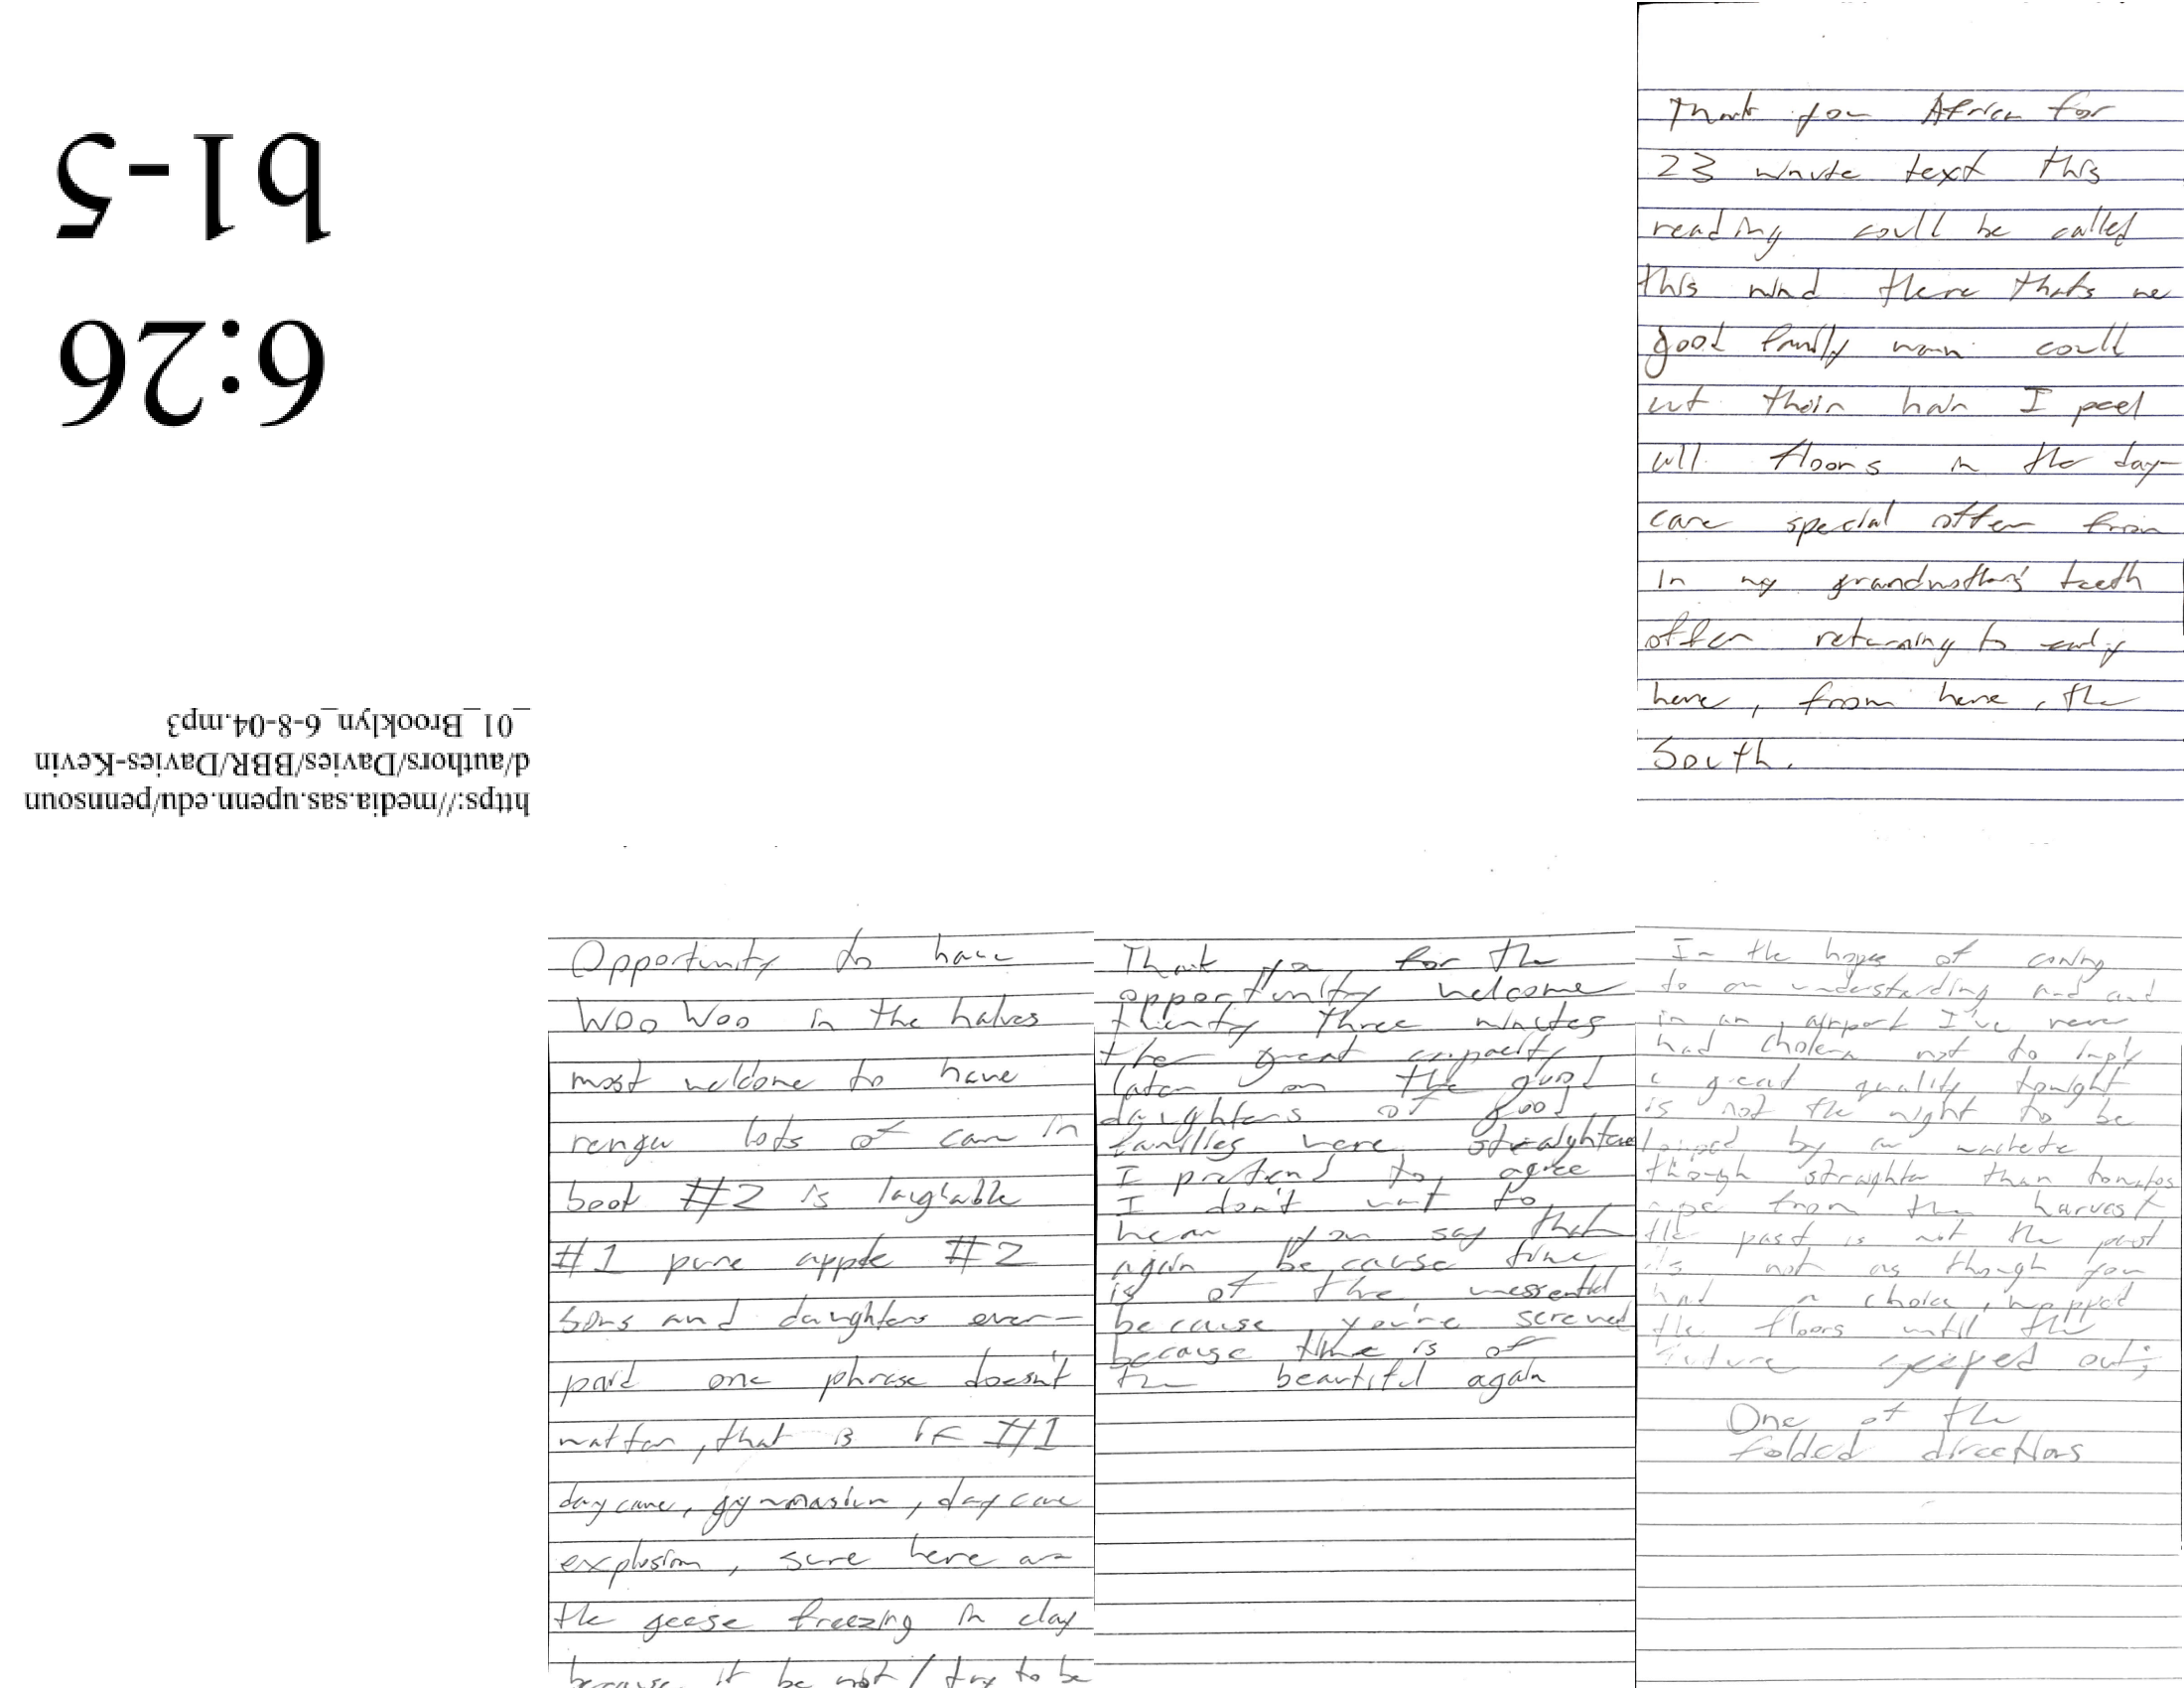 b1-5
6:26
https://media.sas.upenn.edu/pennsoun
d/authors/Davies/BBR/Davies-Kevin
_01_Brooklyn_6-8-04.mp3
Thank you Africa for
23 minute text this
reading could be called
this mind there thats me
good family man could
cut their hair I peel
all floors in the day-
care special often from
in my grandmothers' teeth
often returning to early
here, from here, the
South.
Opportunity to have
Woo Woo in the halves
most welcome to have
renga lots of care in
boot #2 is laughable
#1 pure apple #2
sons and daughters over-
paid one phrase doesn't
matter, that is if #1
daycare, gymnasium, daycare
explosion, sure here are
the geese freezing in clay
because it be not / try to be
Thank you for the
opportunity welcome
twenty three minutes
the great capacity
later on the good
daughters of good
families were straighter
I pretend to agree
I don't want to
hear you say that
again because time
is of the unessential
because you're screwed
because time is of
the beautiful again
In the hopes of coming
to an understanding and and
in an airport I've never
had cholera not to imply
a great quality tonight
is not the night to be
by a machete
though straighter than tomatos
ripe from the harvest
the past is not the past
it's not as though you
had a choice, mopped
the floors until the
future seeped out;
One of the
folded directions